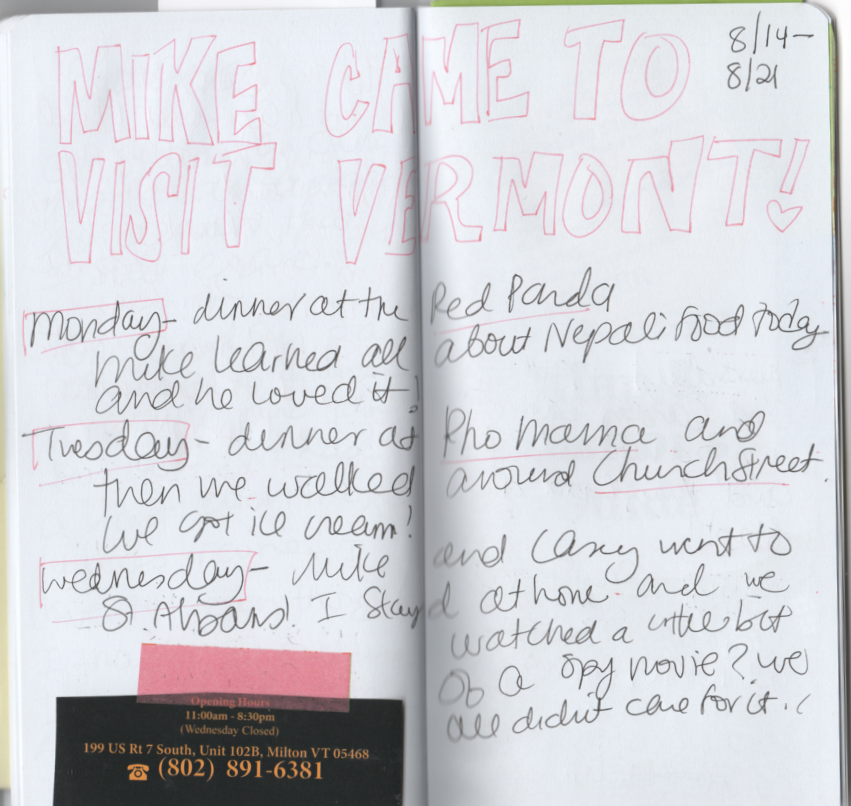 MIKE CAME TO
8/14—
8/21
VISIT VERMONT!
Monday - dinner at the Red Panda
Mike learned all about Nepali food today
and he loved it!
Tuesday - dinner at Pho Mama and
then we walked around Church Street.
We got ice cream!
Wednesday - Mike and Casey went to
St. Albans! I stayed at home and we
watched a little bit
of a spy movie? we
all didn't care for it :(
Opening Hours
11:00am - 8:30pm
(Wednesday Closed)
199 US Rt 7 South, Unit 102B, Milton VT 05468
☎ (802) 891-6381